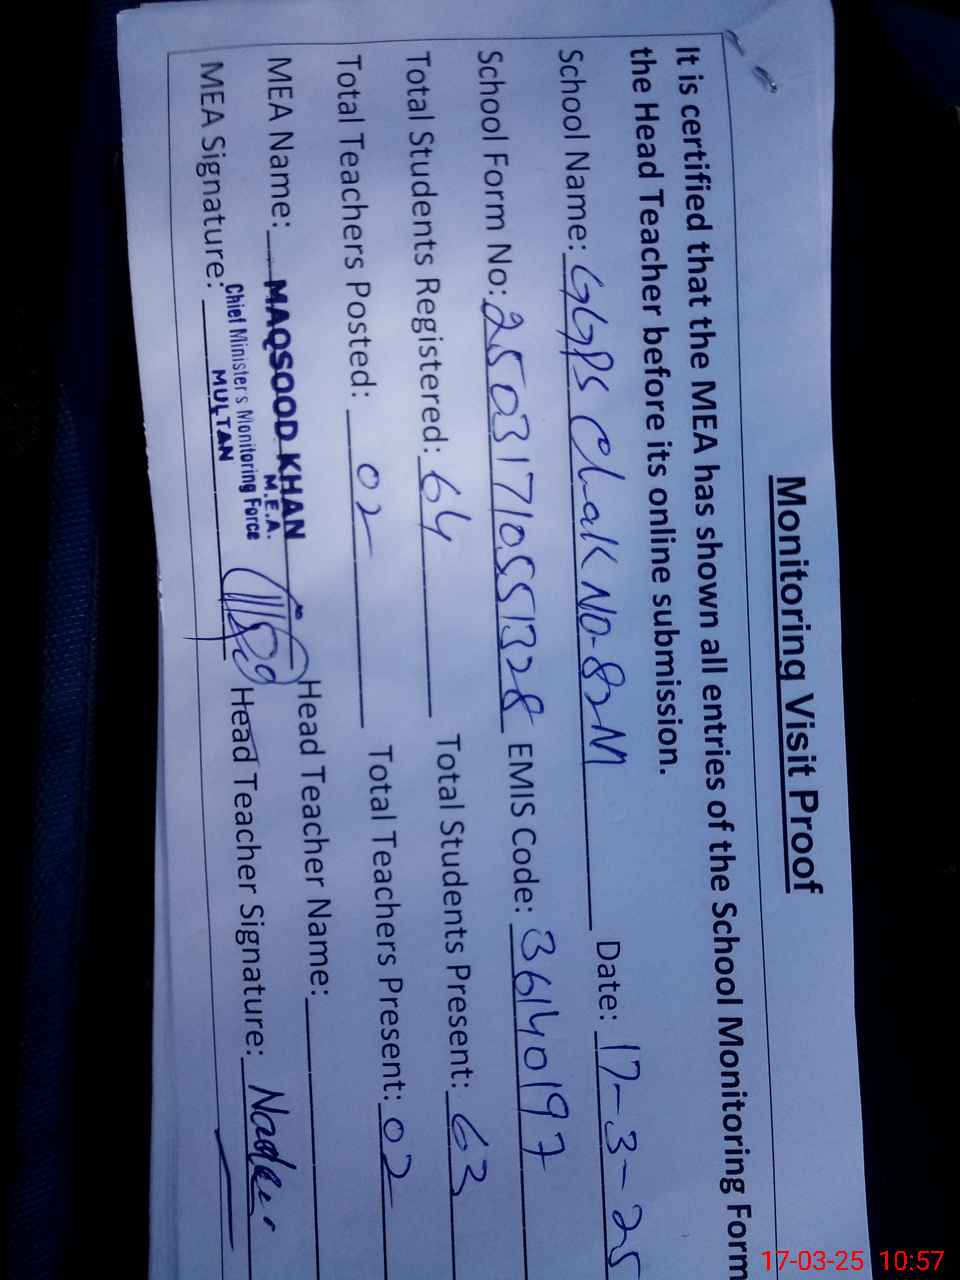 Monitoring Visit Proof
It is certified that the MEA has shown all entries of the School Monitoring Form
the Head Teacher before its online submission.
School Name: GGPS Chak No-82M Date: 17-3-25
School Form No: 25031710551328 EMIS Code: 36140197
Total Students Registered: 64 Total Students Present: 63
Total Teachers Posted: 02 Total Teachers Present: 02
MEA Name: MAQSOOD KHAN Head Teacher Name:
M.E.A.
Chief Minister's Monitoring Force
MULTAN
MEA Signature: Head Teacher Signature:
17-03-25 10:57